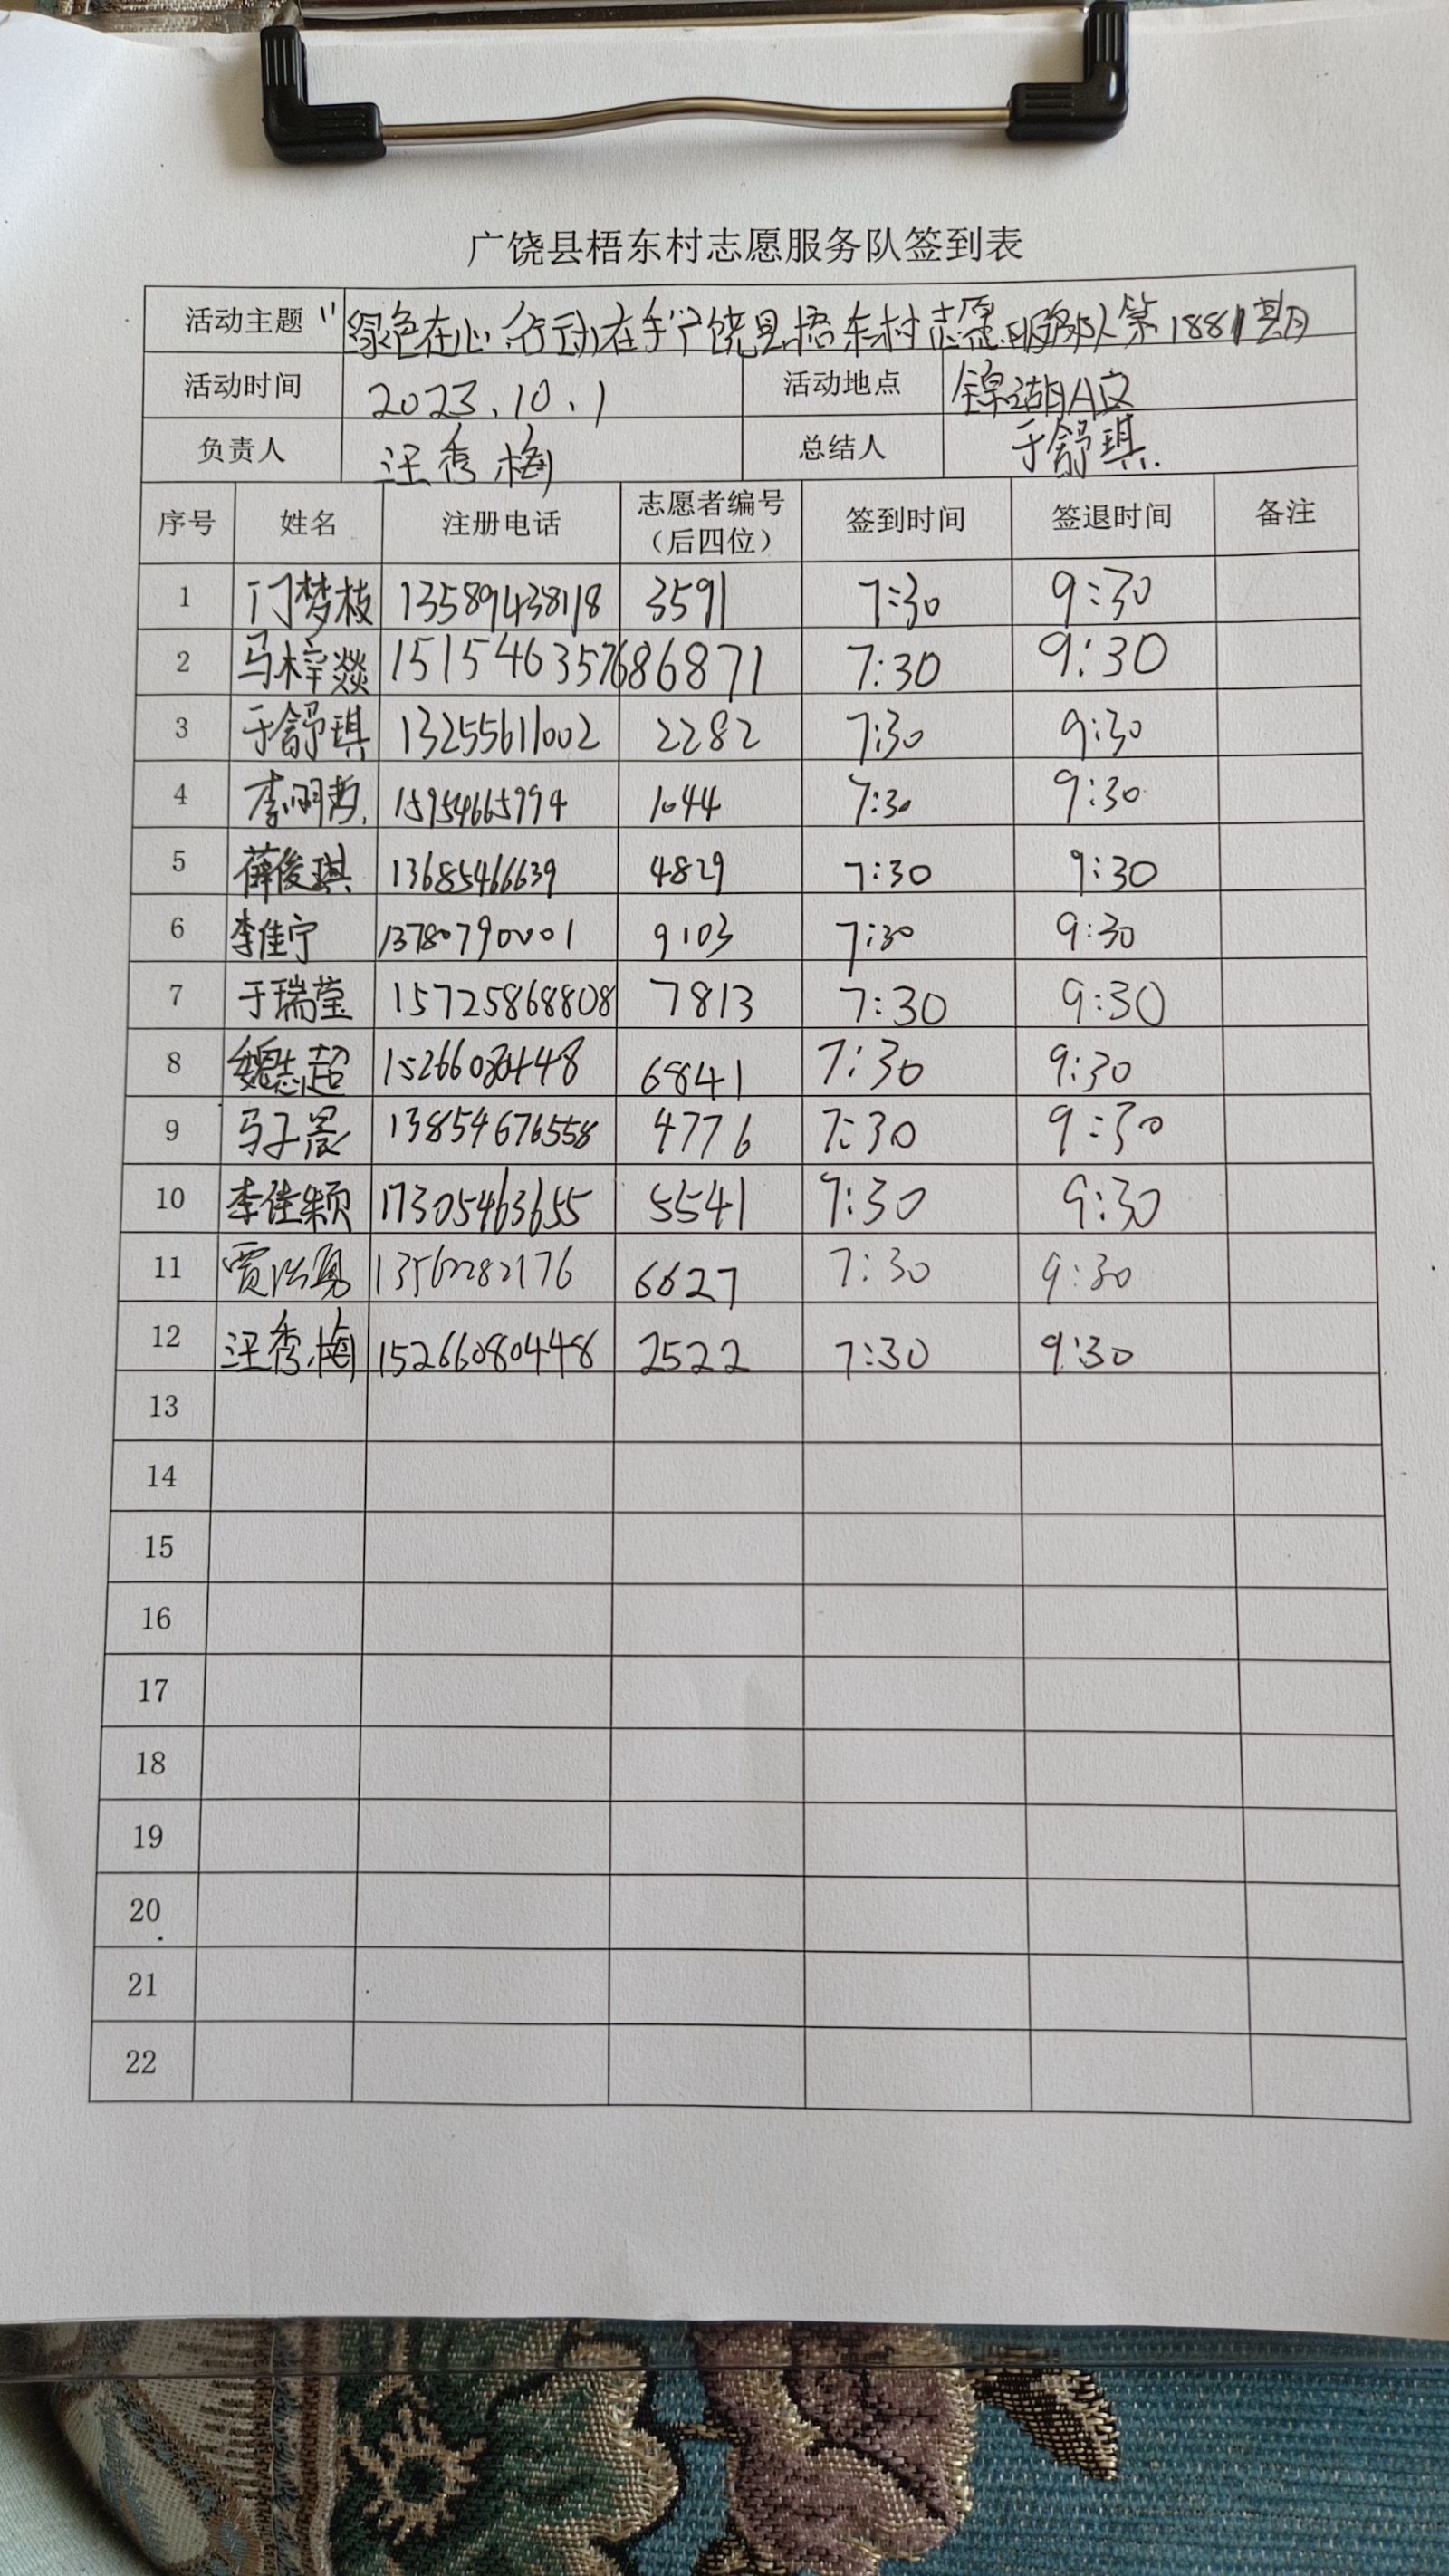 广饶县梧东村志愿服务队签到表
活动主题 "绿色在心,行动在手"广饶县梧东村志愿服务队第1881期
活动时间 2023.10.1 活动地点 锦湖A区
负责人 汪秀梅 总结人 于舒琪.
序号 姓名 注册电话 志愿者编号（后四位） 签到时间 签退时间 备注
1 门梦枝 13589438118 3591 7:30 9:30
2 马梓燚 15154635768 6871 7:30 9:30
3 于舒琪 13255611002 2282 7:30 9:30
4 李明哲. 15954665994 1044 7:30 9:30
5 薛俊琪 13685466639 4829 7:30 9:30
6 李佳宁 13780790001 9103 7:30 9:30
7 于瑞莹 15725868808 7813 7:30 9:30
8 魏志超 15266080448 6841 7:30 9:30
9 马子晨 13854676558 4776 7:30 9:30
10 李佳颖 17305463655 5541 7:30 9:30
11 6627 7:30 9:30
12 汪秀梅 15266080448 2522 7:30 9:30
13
14
15
16
17
18
19
20
21
22